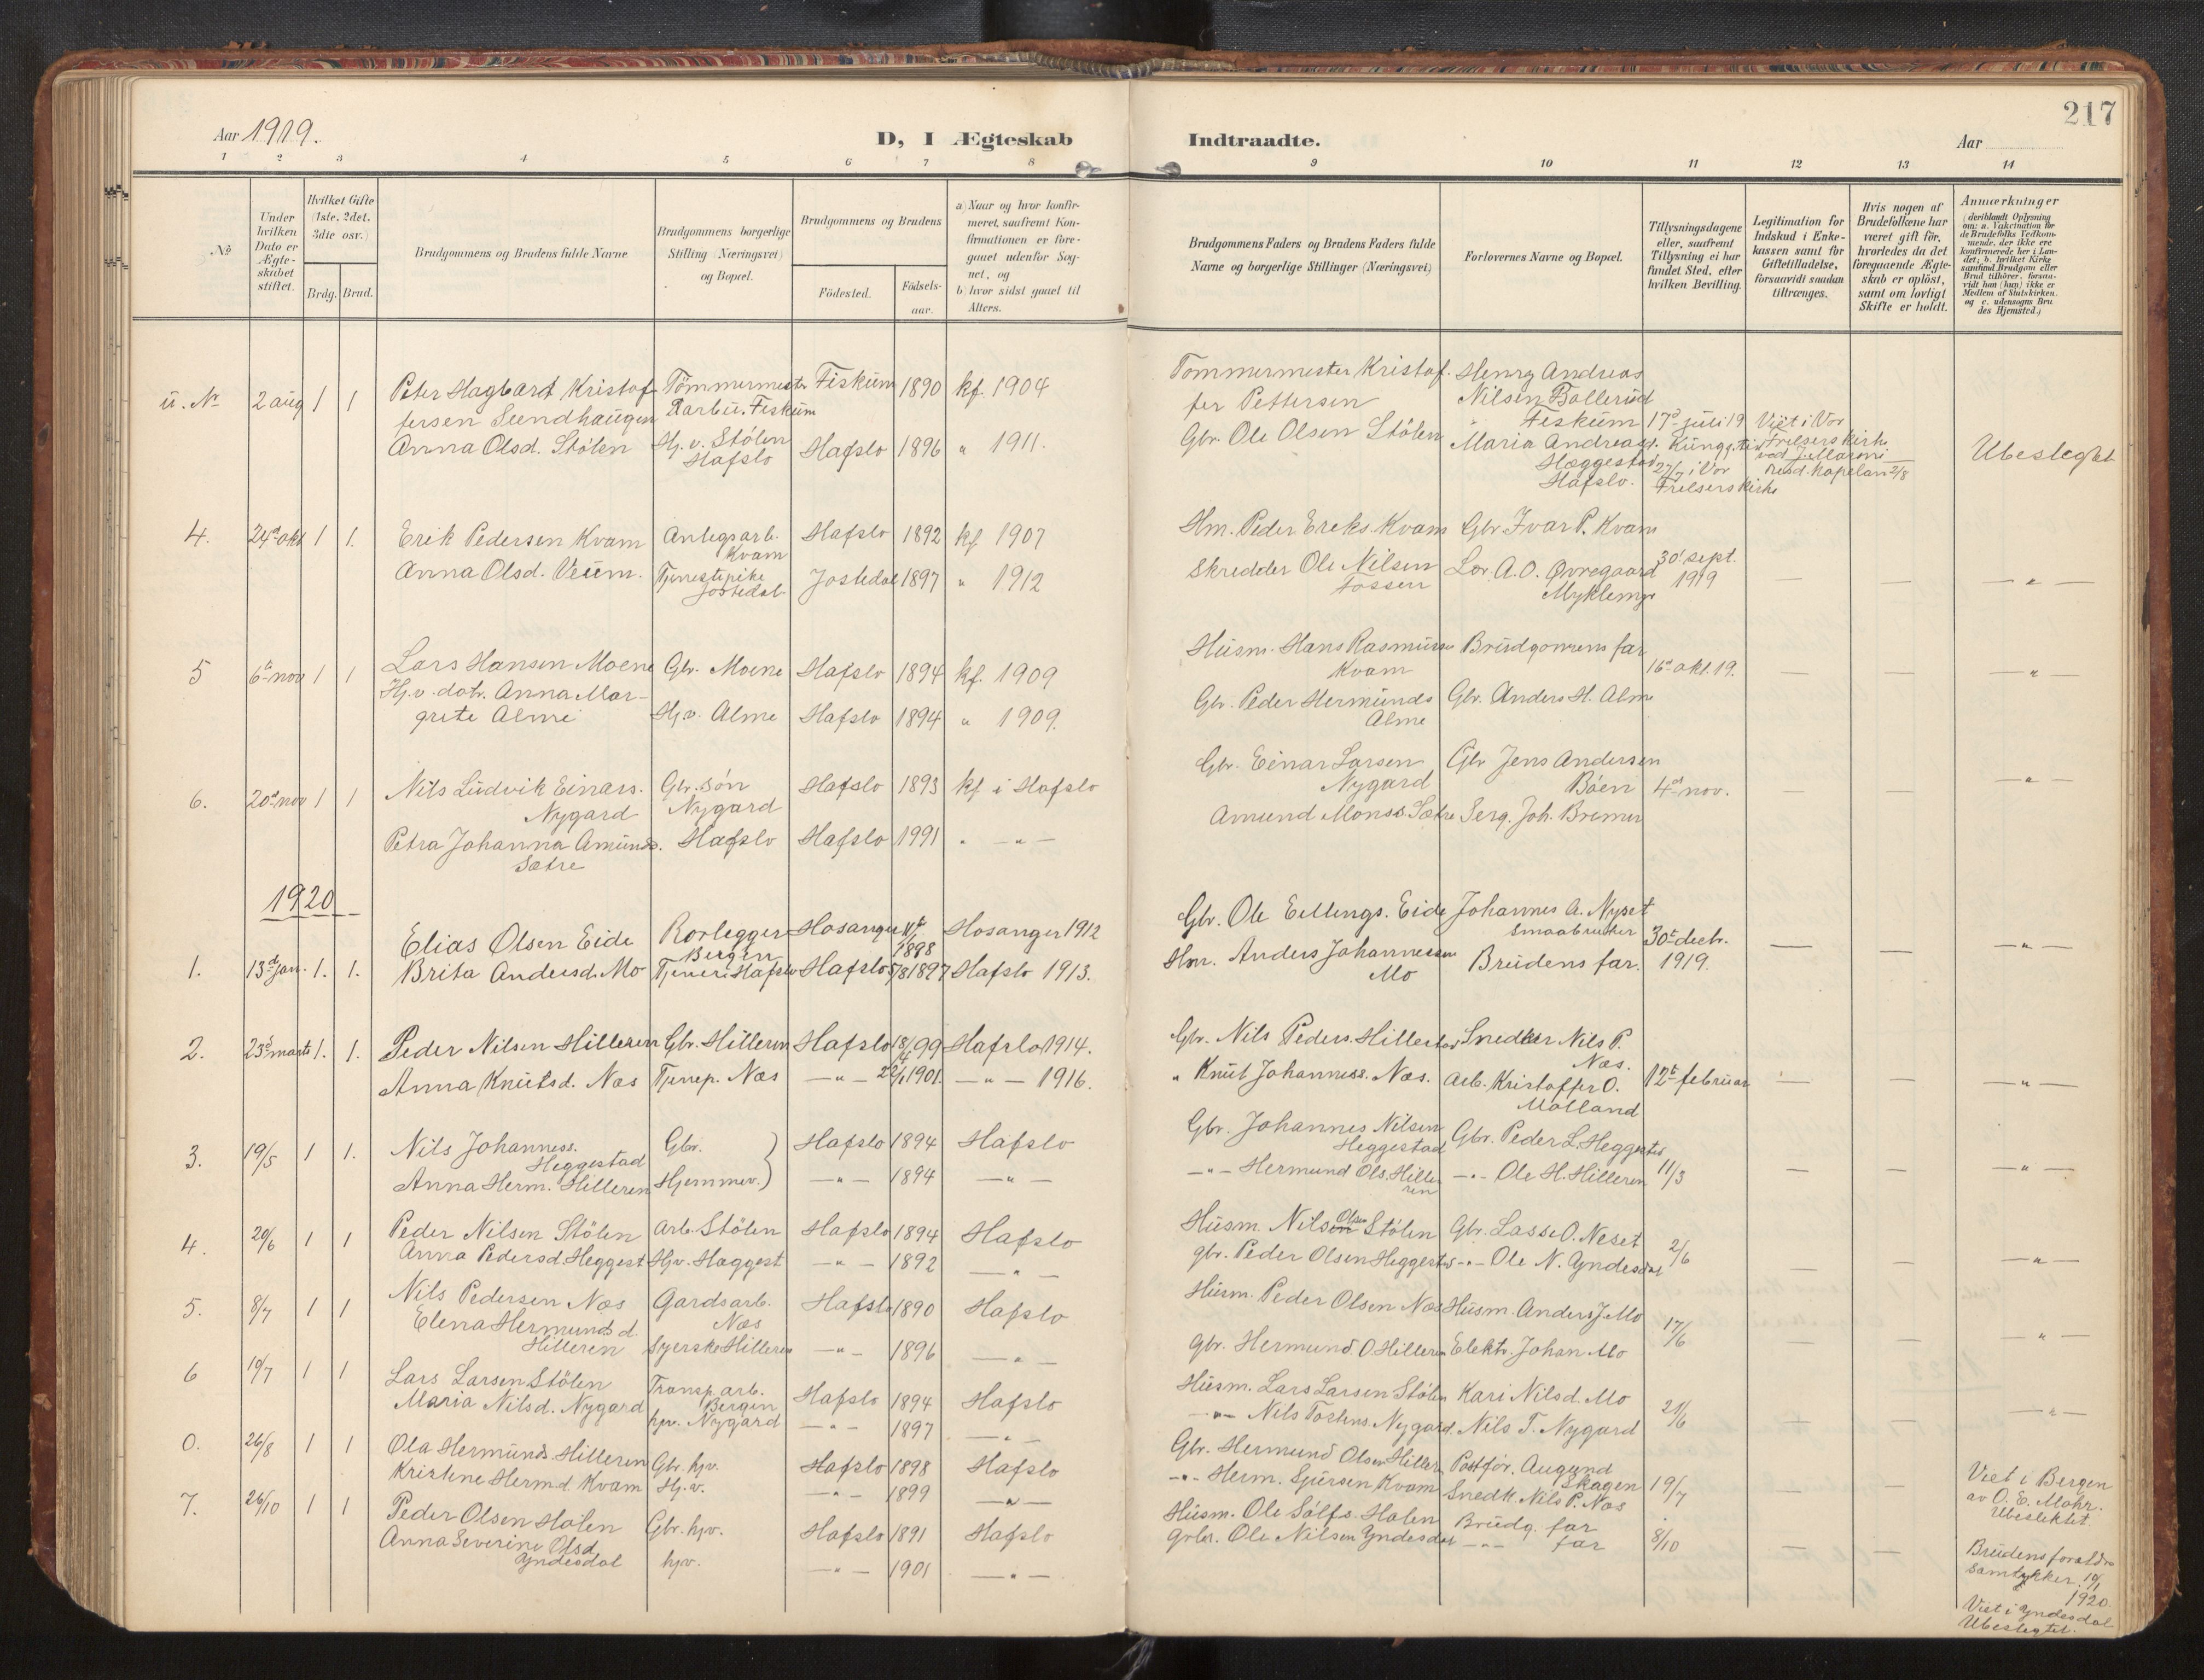 217
Aar 1919.
D, I Ægteskab
Indtraadte.
Aar
1 2 3 4 5 6 7 8 9 10 11 12 13 14
No
Under hvilken Dato er Ægteskabet stiftet.
Hvilket Gifte (1ste, 2det, 3die osv.)
Brdg. Brud.
Brudgommens og Brudens fulde Navne
Brudgommens borgerlige Stilling (Næringsvei) og Bopæl.
Brudgommens og Brudens
Fødested.
Fødselsaar.
a) Naar og hvor konfirmeret, saafremt Konfirmationen er foregaaet udenfor Sognet, og
b) hvor sidst gaaet til Alters.
Brudgommens Faders og Brudens Faders fulde Navne og borgerlige Stillinger (Næringsvei)
Forlovernes Navne og Bopæl.
Tillysningsdagene eller, saafremt Tillysning ei har fundet Sted, efter hvilken Bevilling.
Legitimation for Indskud i Enkekassen samt for Giftetilladelse, forsaavidt saadan tiltrænges.
Hvis nogen af Brudefolkene har været gift før, hvorledes da det foregaaende Ægteskab er opløst, samt om lovligt Skifte er holdt.
Anmærkninger
(deriblandt Oplysning om: a. Vakcination for de Brudefolks Vedkommende, der ikke ere konfirmerede her i Landet; b. hvilket Kirkesamfund Brudgom eller Brud tilhører, forsaavidt han (hun) ikke er Medlem af Statskirken, og c. udensogns Brudes Hjemsted.)
u. No 2 aug 1 1 Peter Hagbart Kristof- Tømmermester Fiskum 1890 kf. 1904 Tømmermester Kristof- Henry Andreas
fersen Sundhaugen Darbu. Fiskum fer Pettersen Nilsen Bollerud
Fiskum 17d juli 19 Viet i Vor
Anna Olsd. Stölen Hj. v. Stölen Hafslo Hafslo 1896 " 1911. Gbr. Ole Olsen Stölen Maria Andreasd. Frelsers kirke
Hæggestad 27/7 i Vor res. kapelan 2/8 Ubeslegtet
Hafslo. Frelsers kirke
4. 24d okt 1 1. Erik Pedersen Kvam Anlegsarb. Kvam Hafslo 1892 kf 1907 Hm. Peder Ereks. Kvam Gbr. Ivar P. Kvam 30' sept.
Anna Olsd. Veum. Tjenestepike Jostedal Jostedal 1897 " 1912 Skredder Ole Nilsen Fossen A. O. Øvregaard 1919 — — — " —
5 6te nov 1 1 Lars Hansen Moene Gbr. Moene Hafslo 1894 kf. 1909 Husm. Hans Rasmussen Kvam Brudgommens far 16d okt. 19. — — — " —
Hj. v. dotr. Anna Mar-
grete Alme Hj.v. Alme Hafslo 1894 " 1909. Gbr. Peder Hermunds Alme Gbr. Anders H. Alme
6. 20d nov 1 1 Nils Ludvik Einars. Nygard Gbr. søn Nygard Hafslo 1893 kf i Hafslo Gbr. Einar Larsen Nygard Gbr Jens Andersen Bøen 4de nov. — — — " —
Petra Johanna Amunds. Sætre Hafslo Hafslo 1991 " — " — Amund Monss. Sætre Serg. Joh. Bremer
1920
1. 13d jan. 1. 1. Elias Olsen Eide Rørlegger Bergen Hosanger 1898 Hosanger 1912 Gbr. Ole Eellings. Eide Johannes A. Nyset smaabruker 30te decbr. — — — " —
Brita Andersd. Mo Tjener Hafslo Hafslo 5/8 1897 Hafslo 1913. Hm. Anders Johannessen Mo Brudens far. 1919.
2. 23d marts 1. 1. Peder Nilsen Hilleren Gbr. Hilleren Hafslo 18/4 99 Hafslo 1914. Gbr. Nils Peders. Hilleren Snedker Nils P. Næs.
Anna Knutsd. Næs Tjenep. Næs — " — 22/1 1901. — " — 1916. " Knut Johanness. Næs. Arb. Kristoffer O. Molland 12te februar — — — " —
3. 19/5 1 1. Nils Johanness. Heggestad Gbr. Hafslo 1894 Hafslo Gbr. Johannes Nilsen Heggestad Gbr. Peder L. Heggestad
Anna Herm. Hilleren Hjemmev. — " — 1894 — " — — " — Hermund Ols. Hilleren — " — Ole H. Hilleren 11/3 — — — " —
4. 20/6 1 1 Peder Nilsen Stölen Arb. Stölen Hafslo 1894 Hafslo Husm. Nils Olsen Stölen Gbr. Lasse O. Neset 2/6
Anna Pedersd. Heggest Hjv. Hæggest — " — 1892 — " — gbr. Peder Olsen Heggestad — " — Ole N. Yndesdal — — — " —
5. 8/7 1 1 Nils Pedersen Næs Gardsarb. Næs Hafslo 1890 Hafslo Husm. Peder Olsen Næs Husm. Anders J. Mo 17/6
Elena Hermunds d. Hilleren Syerske Hilleren — " — 1896 — " — gbr. Hermund O. Hilleren Elektr. Johan Mo — — — " —
6 19/7 1 1 Lars Larsen Stölen Transp. arb. Bergen Hafslo 1894 Hafslo Husm. Lars Larsen Stölen Kari Nilsd. Mo 21/6
Maria Nilsd. Nygard hjv. Nygard — " — 1897 — " — — " — Nils Tostens. Nygard. Nils T. Nygard — — — " —
0. 26/8 1 1 Ola Hermunds. Hilleren Gbr. hjv. Hafslo 1898 Hafslo Gbr. Hermund Olsen Hilleren Postfør. Augund Skagen 19/7 — — Viet i Bergen
Kristine Herm.d. Kvam Hj. v. — " — 1899 — " — — " — Herm. Sjursen Kvam Snedk. Nils P. Næs av O. E. Mohr.
Ubeslektet
7. 26/10 1 1 Peder Olsen Holen Gbr. hjv. Hafslo 1891 Hafslo Husm. Ole Solfs. Holen Brudg. far
Anna Severine Olsd. Yndesdal hjv. — " — 1901 — " — grbr. Ole Nilsen Yndesdal — " — far 8/10 — — Brudens foreldre
samtykker 19/1
1920.
Viet i Yndesdal
Ubeslegtet.